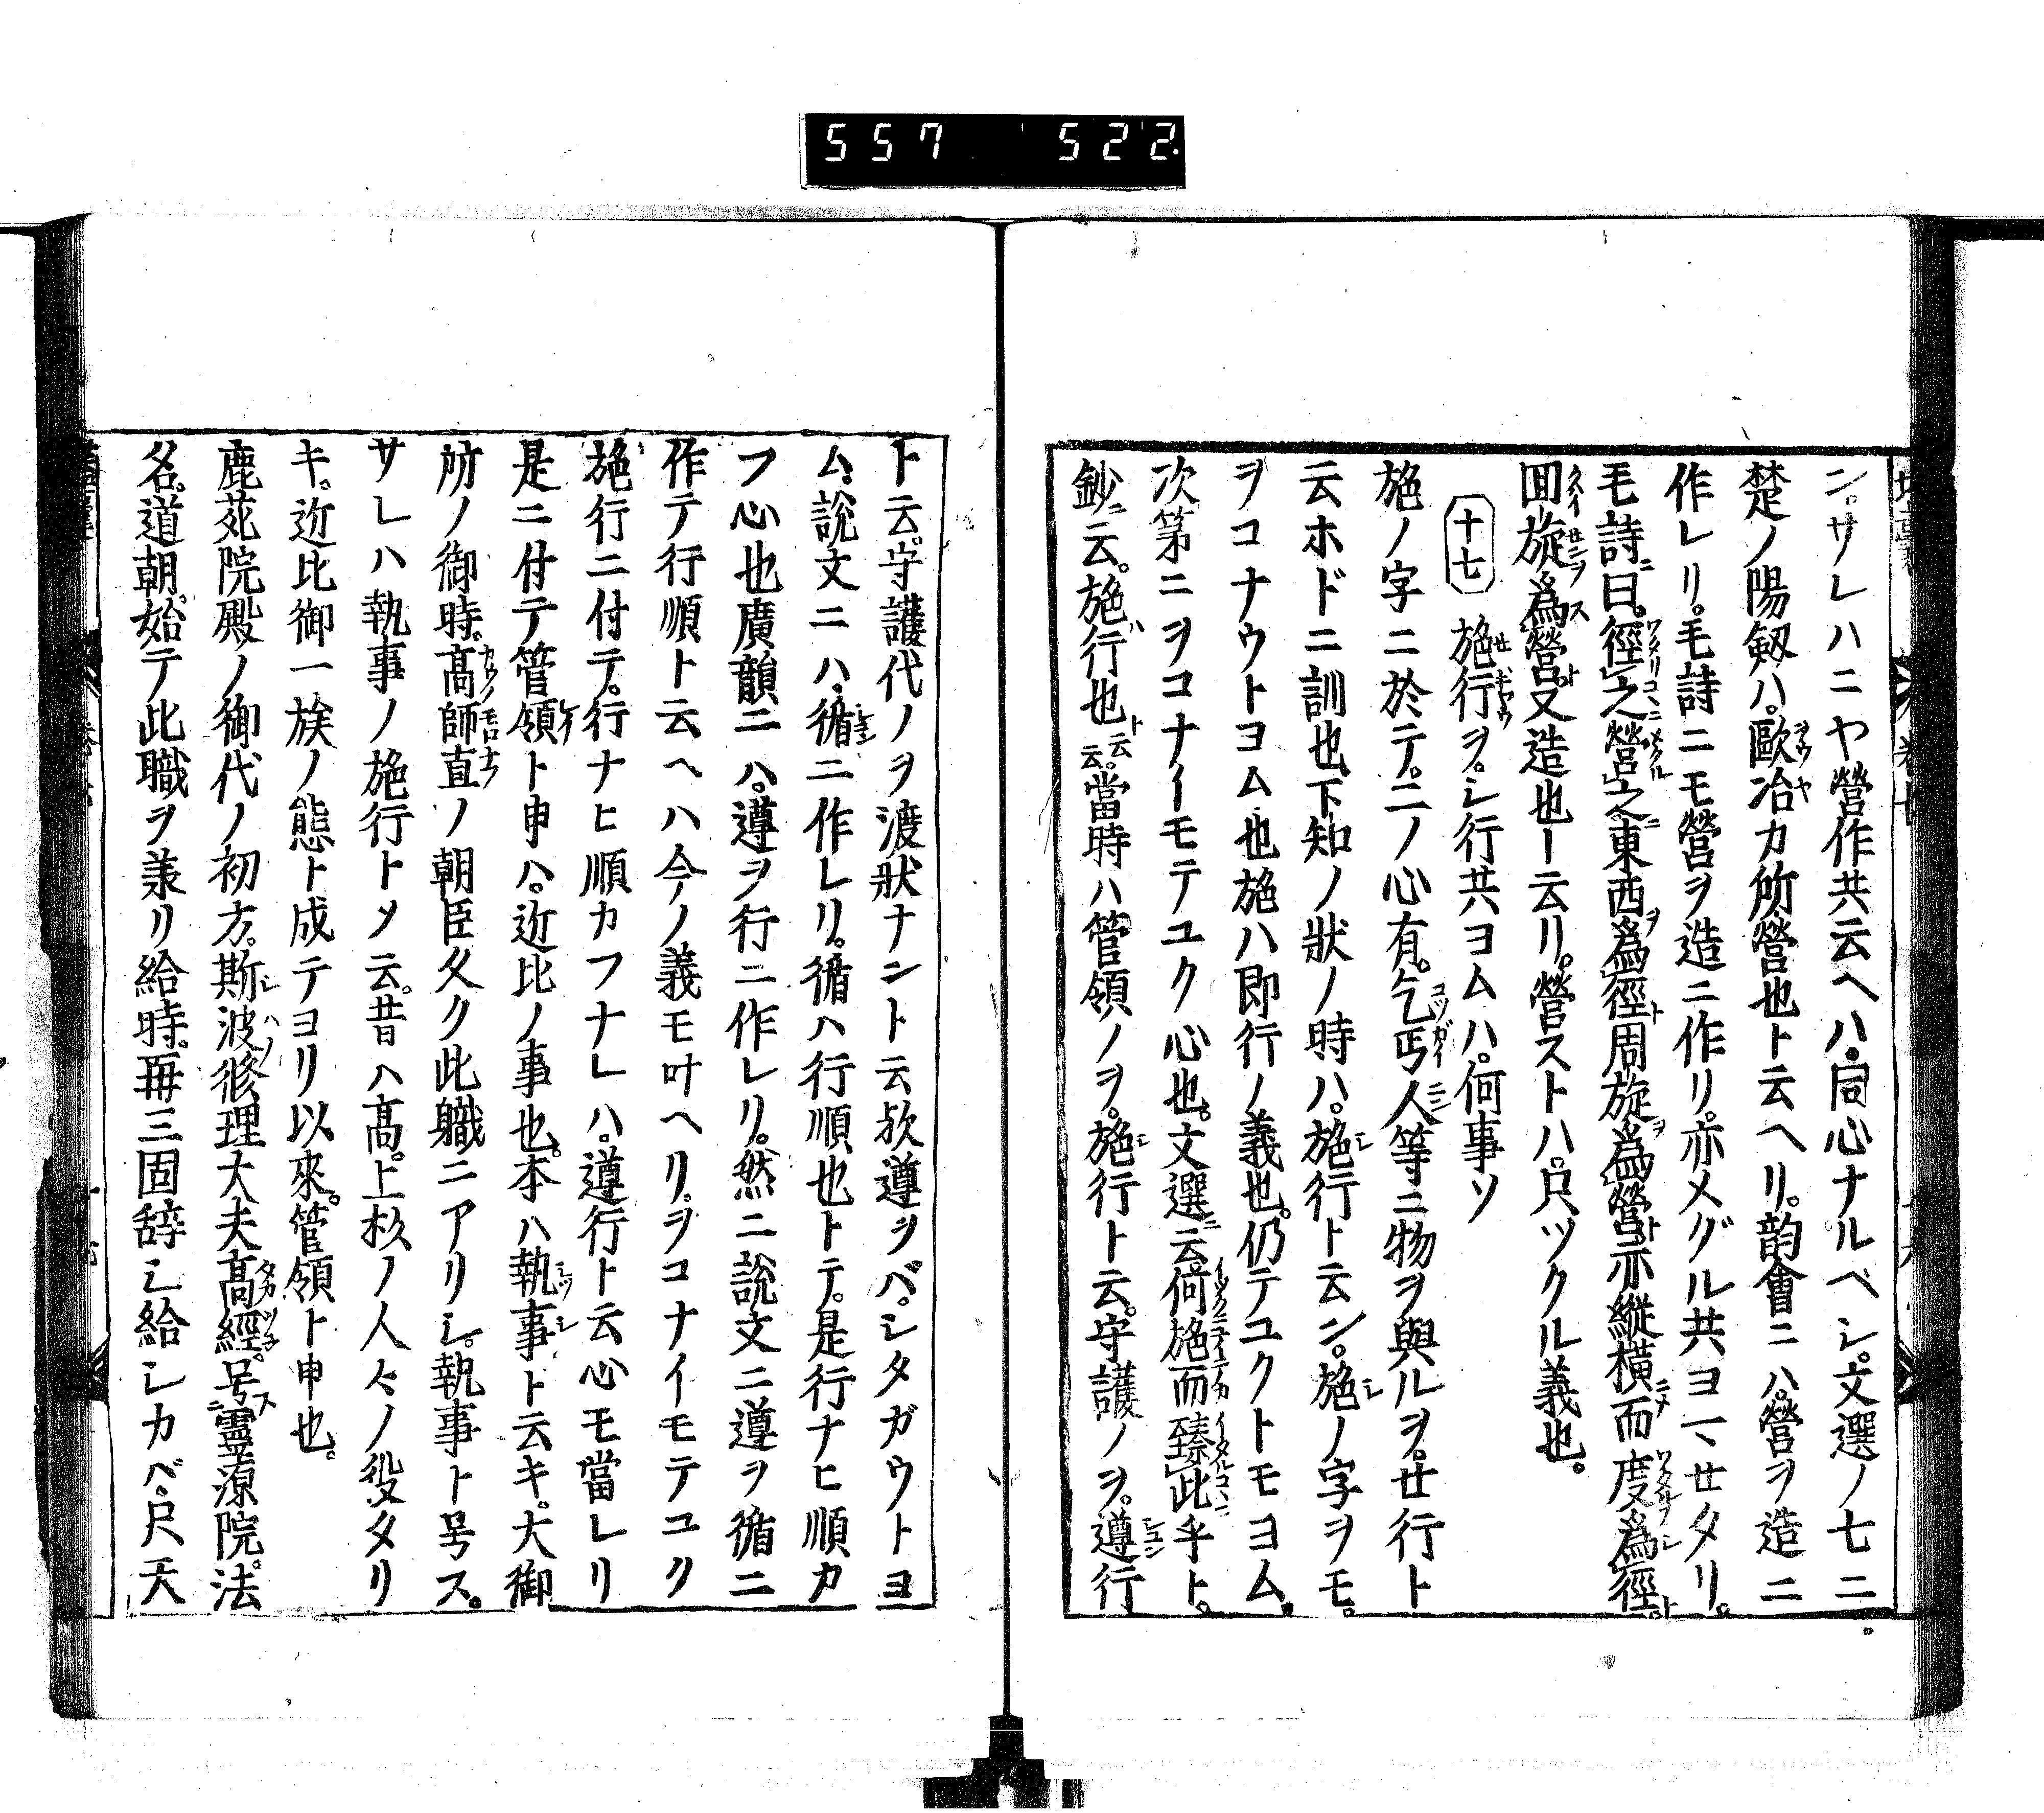 557 522
ン。サレハニヤ營作共云ヘハ。同心ナルベシ。文選ノ七ニ
楚ノ陽剱ハ。歐冶カ所營也ト云ヘリ。韵會ニハ。營ヲ造ニ
作レリ。毛詩ニモ營ヲ造ニ作リ。亦メグル共ヨマセタリ。
毛詩曰。徑之營之。東西爲徑周旋爲營亦縱橫而度爲徑。
回旋爲營。又造也ト云リ。營ストハ。只ツクル義也。
十七 施行ヲ。シ行共ヨムハ。何事ソ
施ノ字ニ於テ。二ノ心有。乞丐人等ニ物ヲ與ルヲ。せ行ト
云ホドニ訓也。下知ノ狀ノ時ハ。施行ト云ン。施ノ字ヲモ。
ヲコナウトヨム也。施ハ即行ノ義也。仍テユクトモヨム。
次第ニヲコナイモテユク心也。文選云。何施而臻此乎ト。
鈔云。施行也云云。當時ハ管領ノヲ。施行ト云。守護ノヲ。遵行
ト云。守護代ノヲ渡狀ナント云欤。遵ヲバ。シタガウトヨ
ム。說文ニハ。循ニ作レリ。循ハ行順也トテ。是行ナヒ順カ
フ心也。廣韻ニハ。遵ヲ行ニ作レリ。然ニ說文ニ遵ヲ循ニ
作テ行順ト云ヘハ今ノ義モ叶ヘリ。ヲコナイモテユク
施行ニ付テ。行ナヒ順カフナレハ。遵行ト云心モ當レリ
是ニ付テ管領ト申ハ。近比ノ事也。本ハ執事ト云キ。大御
所ノ御時。髙師直ノ朝臣久ク此職ニアリシ。執事ト号ス。
サレハ執事ノ施行トメ云。昔ハ髙。上杦ノ人々ノ役タリ
キ。近比御一族ノ態ト成テヨリ以來。管領ト申也。
鹿苑院殿ノ御代ノ初方。斯波修理大夫髙經。号靈源院。法
名。道朝。始テ此職ヲ兼リ給時。再三固辞シ給シカバ。只天